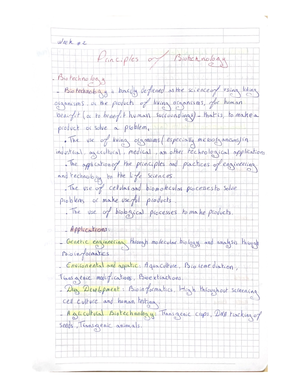 Week #2
Principles of Biotechnology
- Biotechnology
- Biotechnology is basicly defined as the science of using living
organisms, or the products of living organisms, for human
benefit (or to benefit humans surroundings) - that is, to make a
product or solve a problem.
• The use of living organisms (especially microorganisms) in
industrial, agricultural, medical, and other technological applications
• The application of the principles and practices of engineering
and technology to the life sciences
• The use of cellular and biomolecular processes to solve
problems or make useful products
• The use of biological processes to make products.
- Applications:
- Genetic engineering through molecular biology and analysis through
Bioinformatics
- Environmental and aquatic: Aquaculture, Bioremediation,
Transgenic modifications, Bioextractions.
- Drug Development: Bioinformatics, High throughout screening
cell culture and human testing.
- Agricultural Biotechnology: Transgenic crops, DNA tracking of
seeds, Transgenic animals.